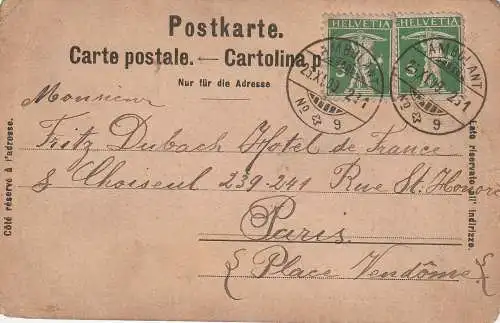 Postkarte.
Carte postale. — Cartolina p
Nur für die Adresse
HELVETIA HELVETIA
5 5
AMBULANT
AMBULANT
No 9
No 9
Monsieur
Fritz Dubach Hotel de France
& Choiseul 239-241 Rue St. Honoré
Paris.
Place Vendôme.
Côté réservé à l'adresse.
Lato riservato all' indirizzo.